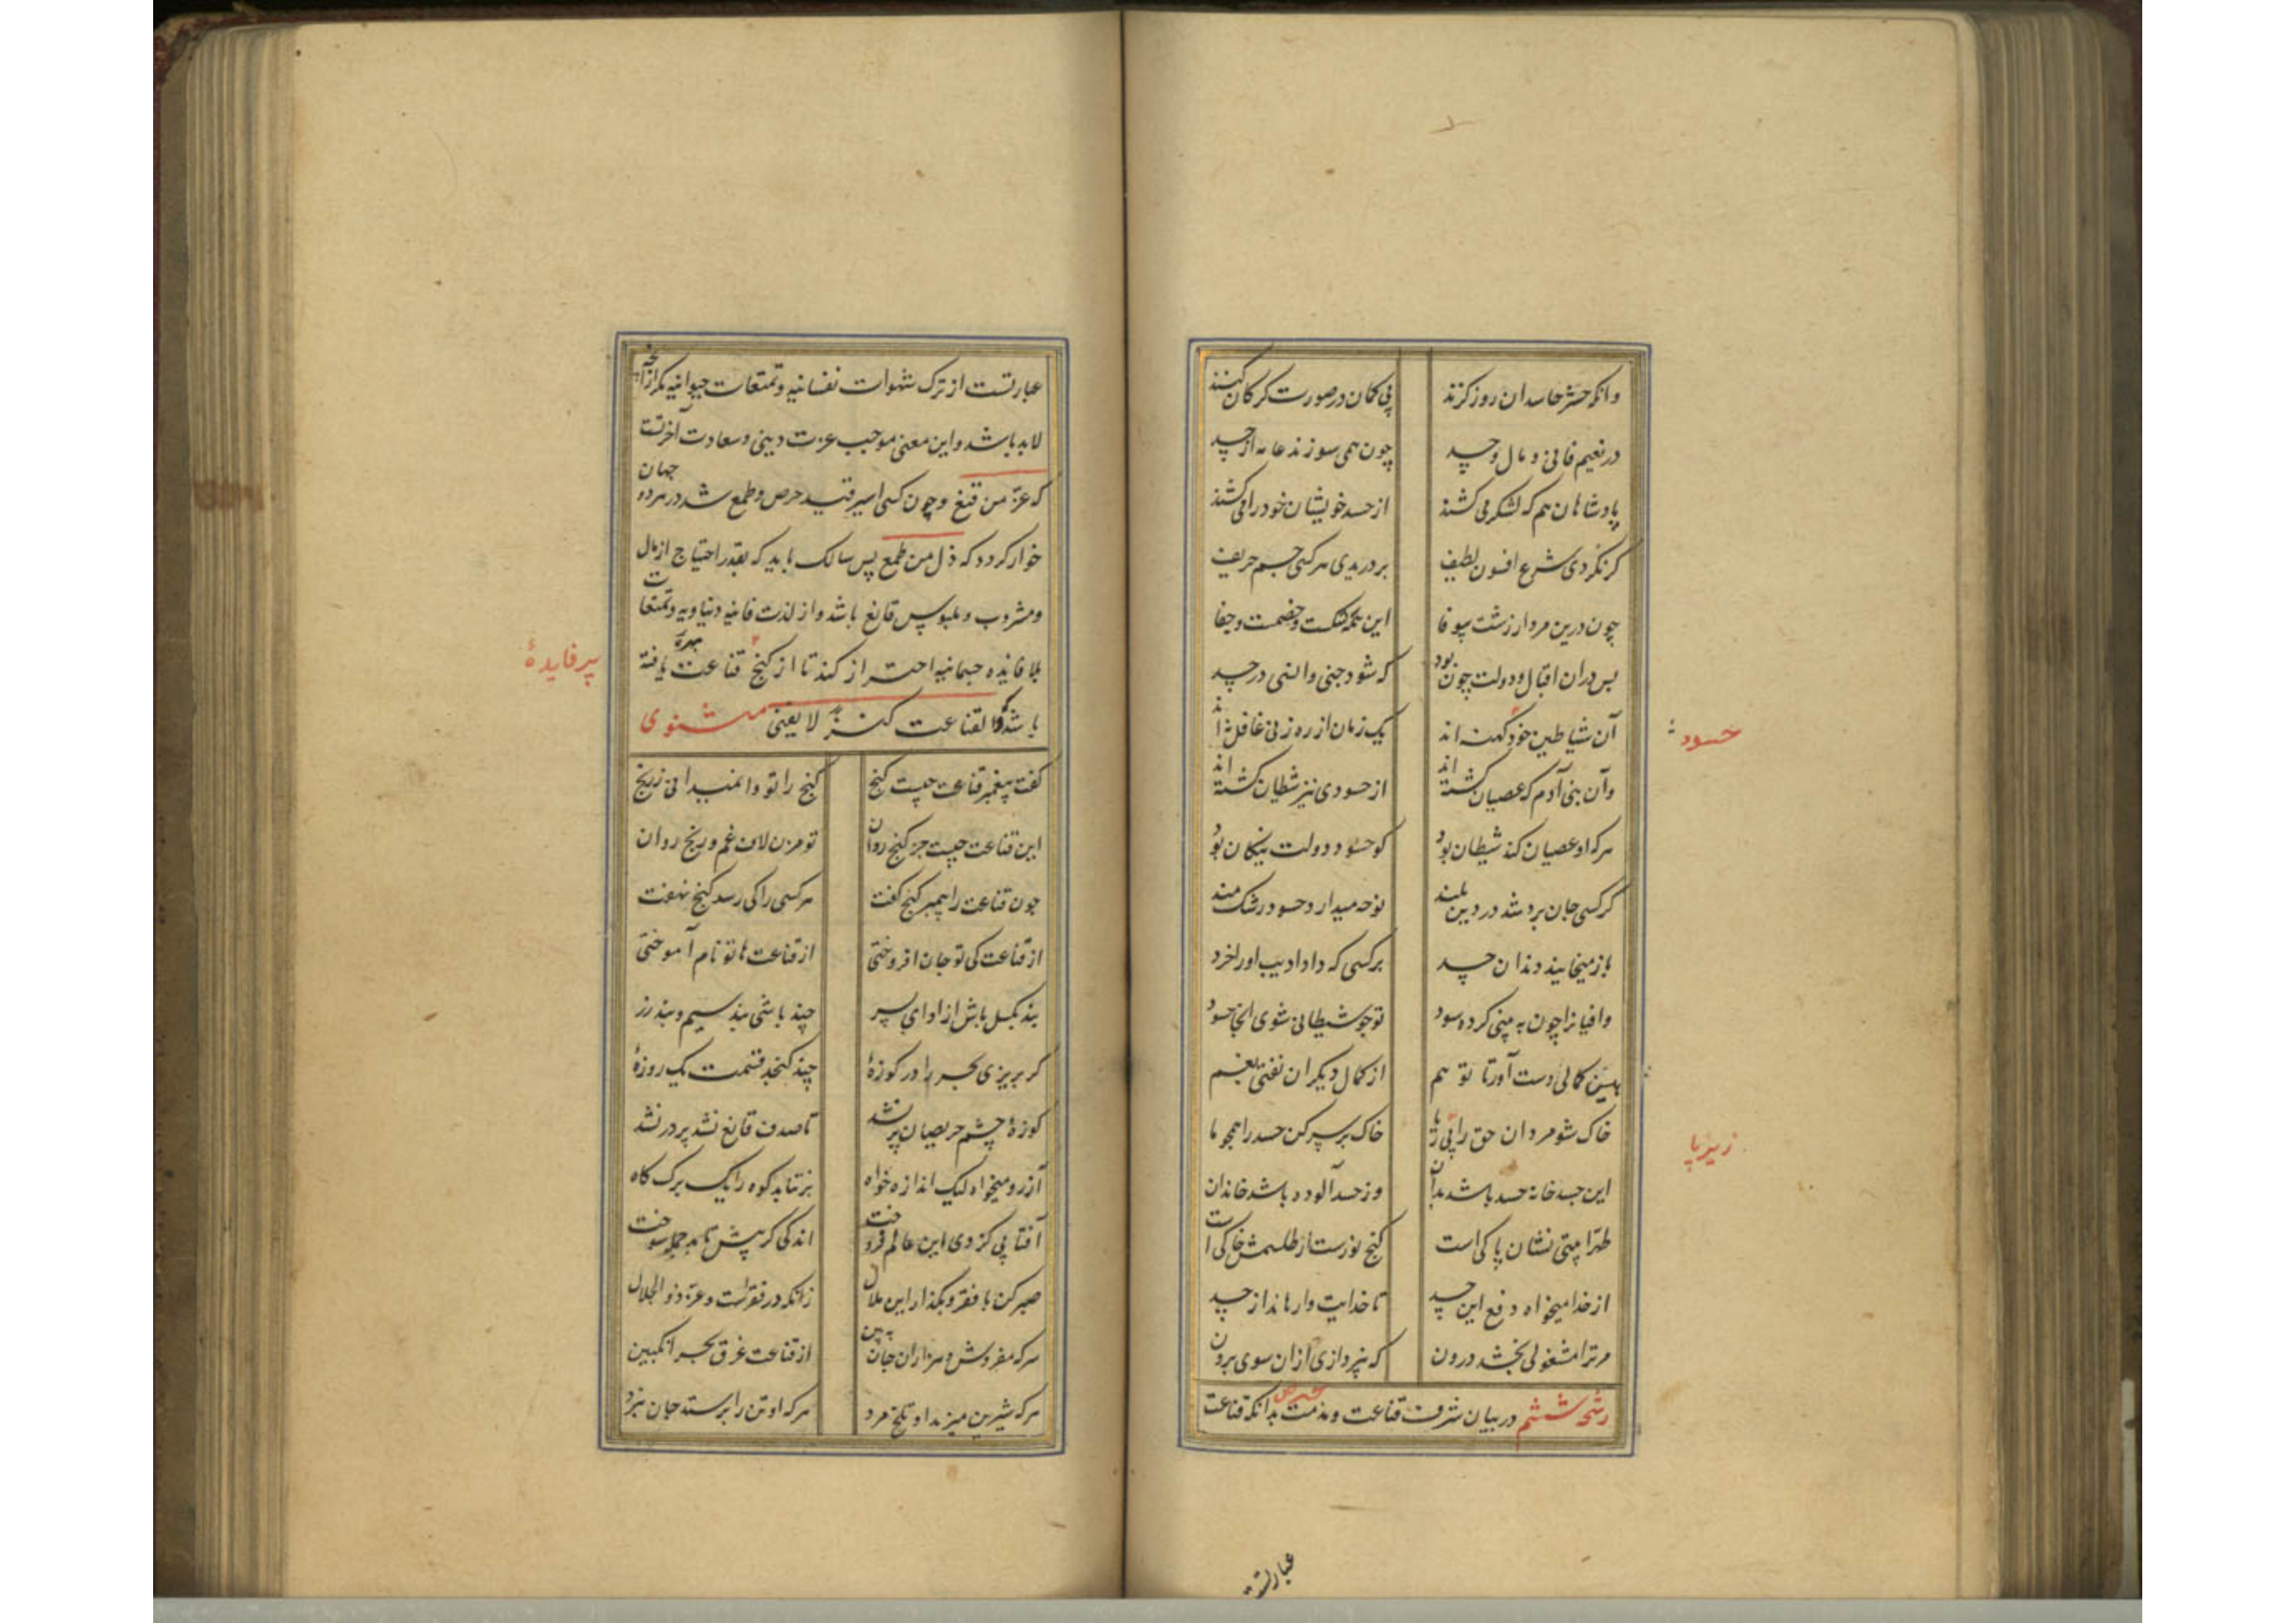 وانکه حشر حاسدان روز کزند بی کمان در صورت کرکان کنند
در نعیم فانی و مال و جسد چون همی سوزند عامه از حسد
پادشاهان هم که لشکر می کشند از حسد خویشان خود را می کشند
کر نکردی شرع افسون لطیف بر دریدی هر کسی جسم حریف
چون درین مردار زشت بیوفا این همه کشکست و خصمست و جفا
پس دران اقبال و دولت چون بود که شود جنی و انسی در حسد
آن شیاطین خود کهنه اند یک زمان از ره زنی غافل نه اند
وآن بنی آدم که عصیان کشته اند از حسودی نیز شیطان کشته اند
هر که او عصیان کند شیطان بود کو حسود دولت نیکان بود
کر کسی جان برد شد در دین بلند نوحه میدارد حسود رشک مند
باز میخایند دندان حسد بر کسی که داد ادیب او را خرد
وافیانرا چون به بینی کرده سود تو چو شیطانی شوی آنجا حسود
هین کمالی دست آور تا تو هم از کمال دیکران نفتی بغم
خاک شو مردان حق را زیر پا خاک بر سر کن حسد را همچو ما
این جسد خانه حسد باشد بدان وز حسد آلوده باشد خاندان
طهرا بیتی نشان پاکی است کنج نورست ار طلسمش خاکی است
از خدا میخواه دفع این حسد تا خدایت وا رهاند از حسد
مر ترا مشغولی بخشد درون که نپردازی ازان سوی برون
رشحه ششم در بیان شرف قناعت و مذمت حرص بدانکه قناعت
حسود
زیر پا
عبارتست
عبارتست از ترک شهوات نفسانیه و تمتعات حیوانیه مکر از آنچه
لابد باشد و این معنی موجب عزت دینی و سعادت آخرتست
که عز من قنع و چون کسی اسیر قید حرص و طمع شد در هر دو جهان
خوار کردد که ذل من طمع پس سالک باید که بقدر احتیاج از مال
و مشروب و ملبوس قانع باشد و از لذت فانیه دنیاویه و تمتعات
بلا فایده جسمانیه احتراز کند تا از کنج قناعت بهره یافته
باشد که القناعت کنز لا یفنی مثنوی
کفت پیغمبر قناعت چیست کنج کنج را تو وا نمیدانی ز رنج
این قناعت چیست جز کنج روان تو مزن لاف غم و رنج روان
چون قناعت را پیمبر کنج کفت هر کسی را کی رسد کنج نهفت
از قناعت کی تو جان افروختی از قناعت ها تو نام آموختی
بند بکسل باش آزاد ای پسر چند باشی بند سیم و بند زر
کر بریزی بحر را در کوزهٔ چند کنجد قسمت یک روزهٔ
کوزهٔ چشم حریصان پر نشد تا صدف قانع نشد پر در نشد
آرزو میخواه لیک اندازه خواه بر نتابد کوه را یک برک کاه
آفتابی کز وی این عالم فروخت اندکی کر پیش تابد جمله سوخت
صبر کن با فقر و بکذار این ملال زانکه در فقرست و عز ذو الجلال
سرکه مفروش و هزاران جان به بین از قناعت غرق بحر انکبین
هر که شیرین میزید او تلخ مرد هر که او تن را پرستد جان نبرد
پر فایدهٔ